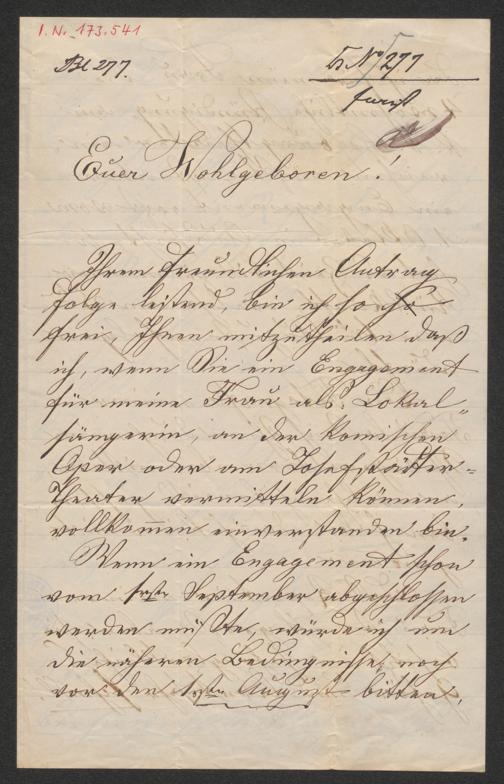 I.N. 173.541
Bl 277.
No 277
Euer Wohlgeboren!
Ihrem freundlichen Antrag
folge leistend, bin ich so so
frei, Ihnen mitzutheilen daß
ich, wenn Sie ein Engagement
für meine Frau als: Lokal„
sängerin, an der komischen
Oper oder am Josefstädter=
Theater vermitteln können,
vollkommen einverstanden bin.
Wenn ein Engagement schon
vom 1sten September abgeschlossen
werden müßte, würde ich um
die näheren Bedingnisse, noch
vor den 1sten August bitten,